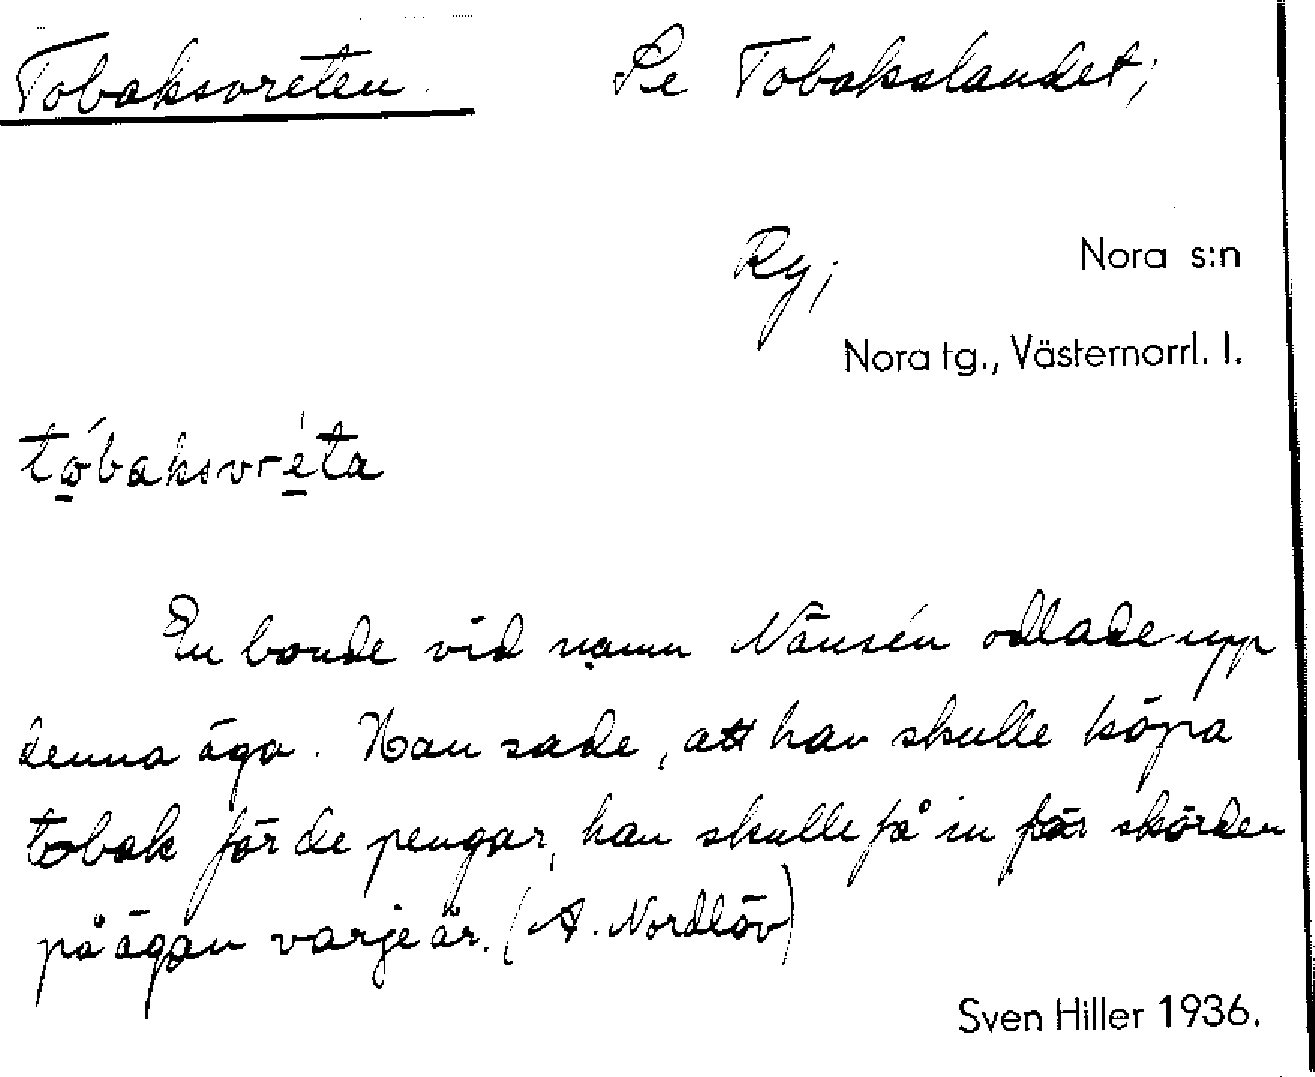 Tobaksvreten. Se Tobakslandet;
Ry; Nora s:n
Nora tg., Västernorrl. l.
tóbaksvréta
En bonde vid namn Nänsén odlade upp
denna äga. Han sade, att han skulle köpa
tobak för de pengar, han skulle få in för skörden
på ägan varje år. (A. Nordlöv)
Sven Hiller 1936.